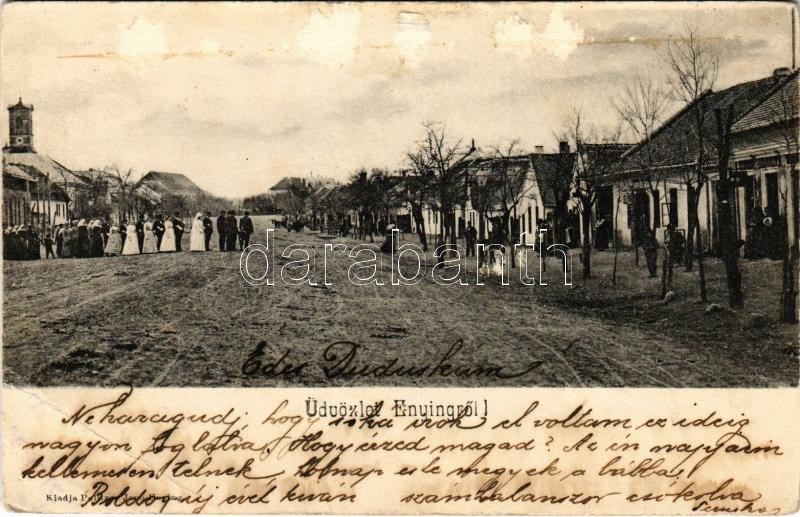 darabanth
Édes Duduskám
Üdvözlet Enyingről!
Ne haragudj, hogy írok el voltam ez ideig
nagyon foglalva. Hogy érzed magad? Az én napjaim
kellemesen telnek, holnap este megyek a bálba,
Boldog új évet kíván számtalanszor csókolva
Kiadja